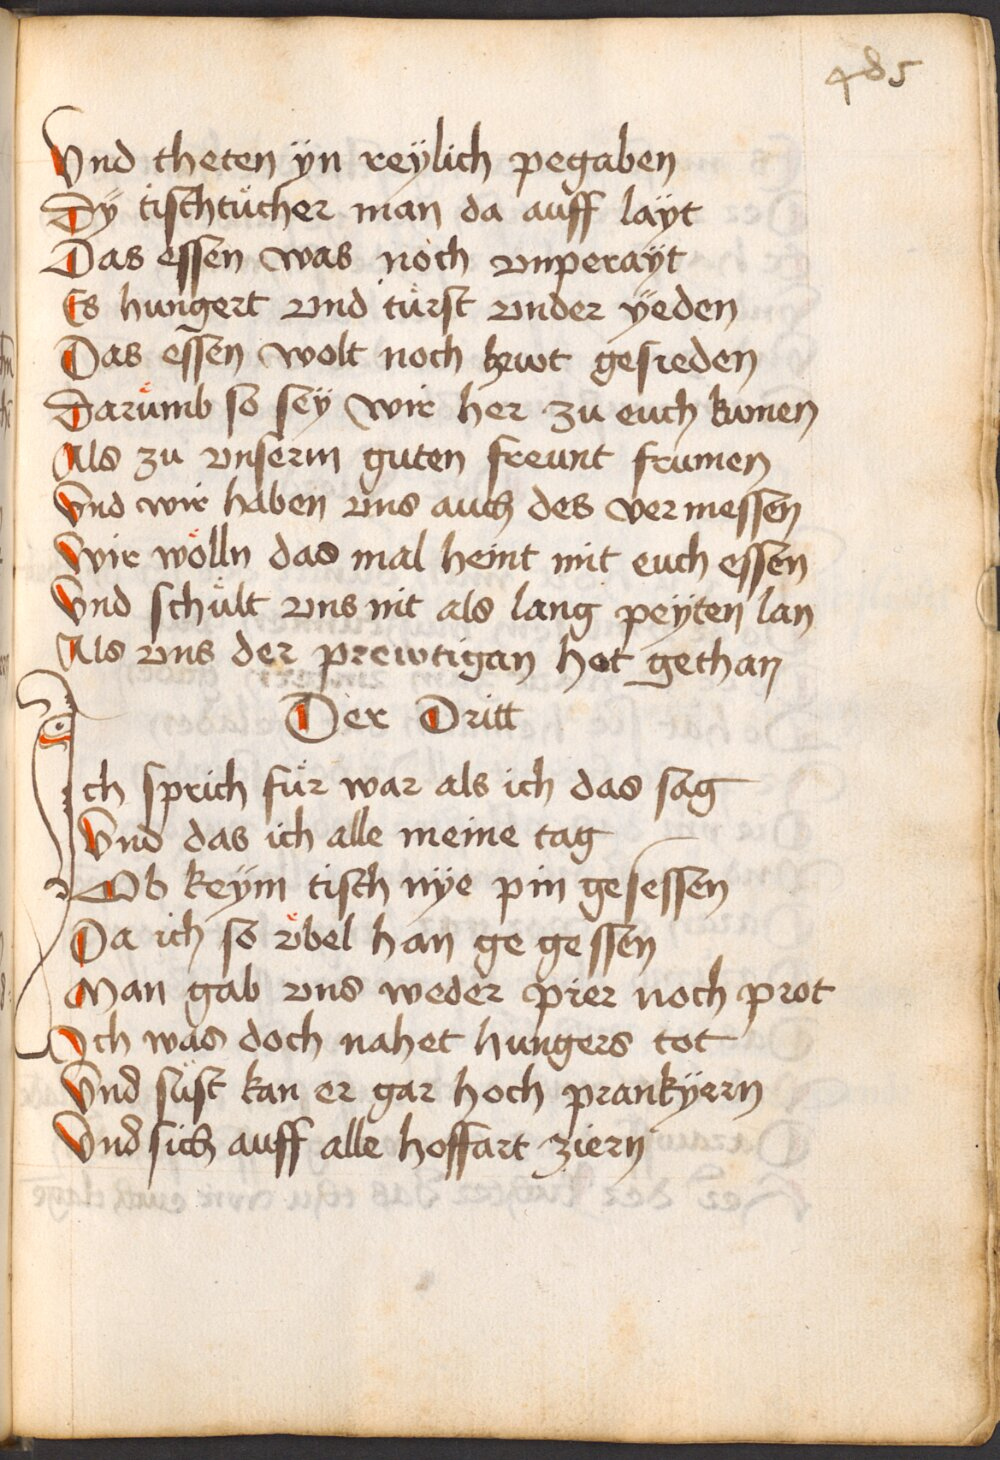 485
Vnd theten ÿn reÿlich pegaben
Dÿ tischtücher man da auff laÿt
Das essen was noch vnperaÿt
Es hungert vnd türst vnder ÿeden
Das essen wolt noch gesieden
Darümb so seÿ wir her zu euch kumen
Als zu vnserm guten freunt frumen
Vnd wir haben vns auch des vermessen
Wir wölln das mal heint mit euch essen
Vnd schült vns nit als lang peÿten lan
Als vns der prewtigan hot gethan
Der Dritt
Ich sprich für war als ich das sag
Vnd das ich alle meine tag
Ob keÿm tisch nÿe pin gesessen
Da ich so vbel han ge gessen
Man gab vns weder pier noch prot
Ich was doch nahet hungers tot
Vnd süst kan er gar hoch prankÿern
Vnd sich auff alle hoffart ziern